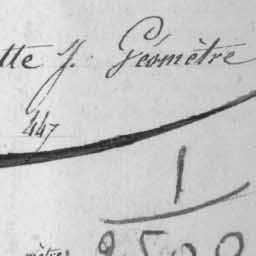 tte J. Géomètre
447
1
mètres 2500